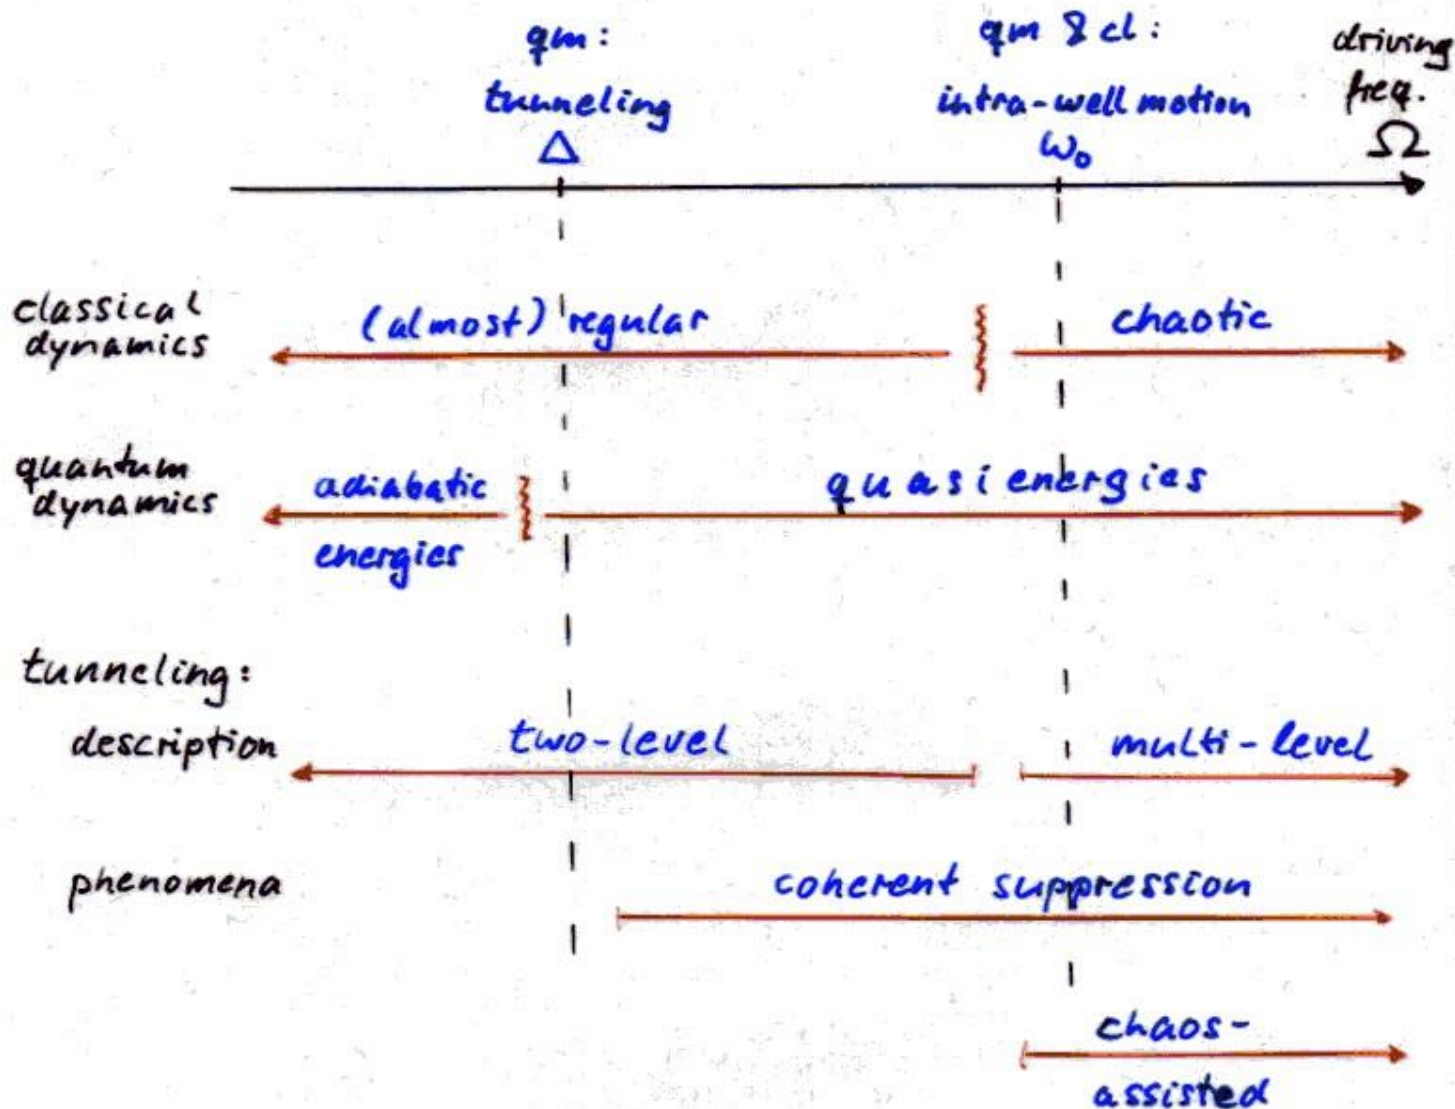 qm:
tunneling
Δ
qm & cl:
intra-well motion
ω₀
driving
freq.
Ω
classical
dynamics
(almost) regular
chaotic
quantum
dynamics
adiabatic
energies
quasienergies
tunneling:
description
two-level
multi-level
phenomena
coherent suppression
chaos-
assisted